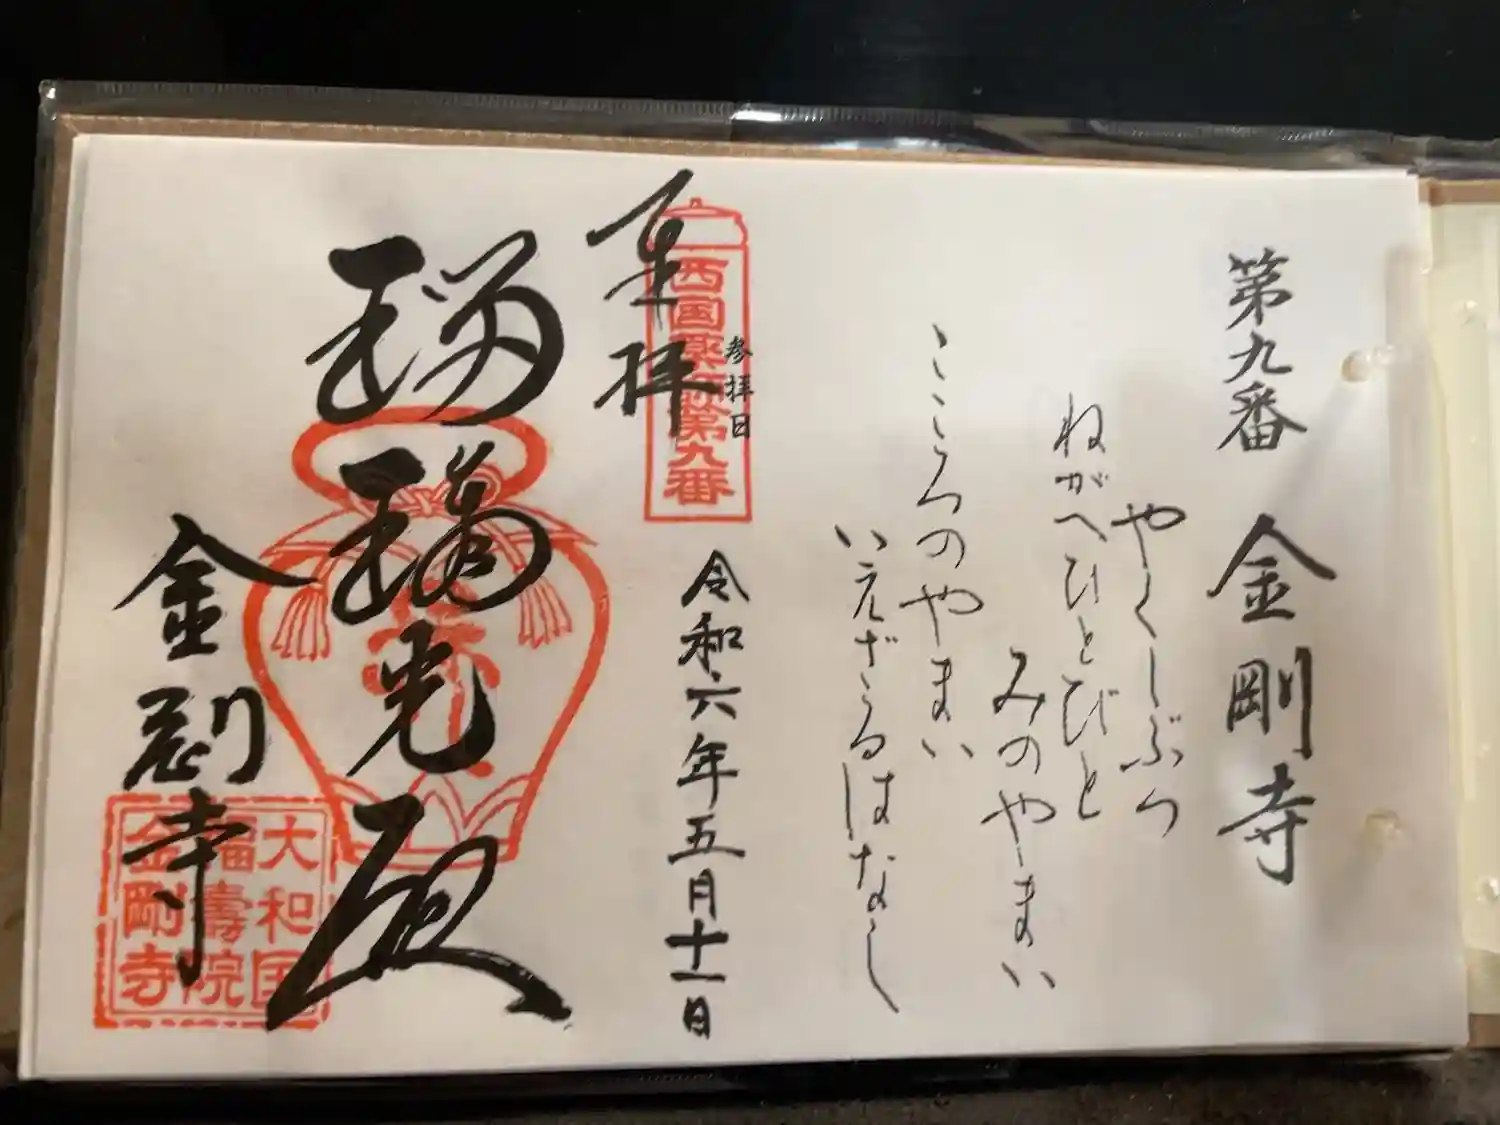 第九番 金剛寺
やくしぶつ
ねがへひとびと
みのやまい
こころのやまい
いえざるはなし
参拝日
奉拝
西国薬師第九番
令和六年五月十一日
瑠璃光殿
金剛寺
大和国
福壽院
金剛寺